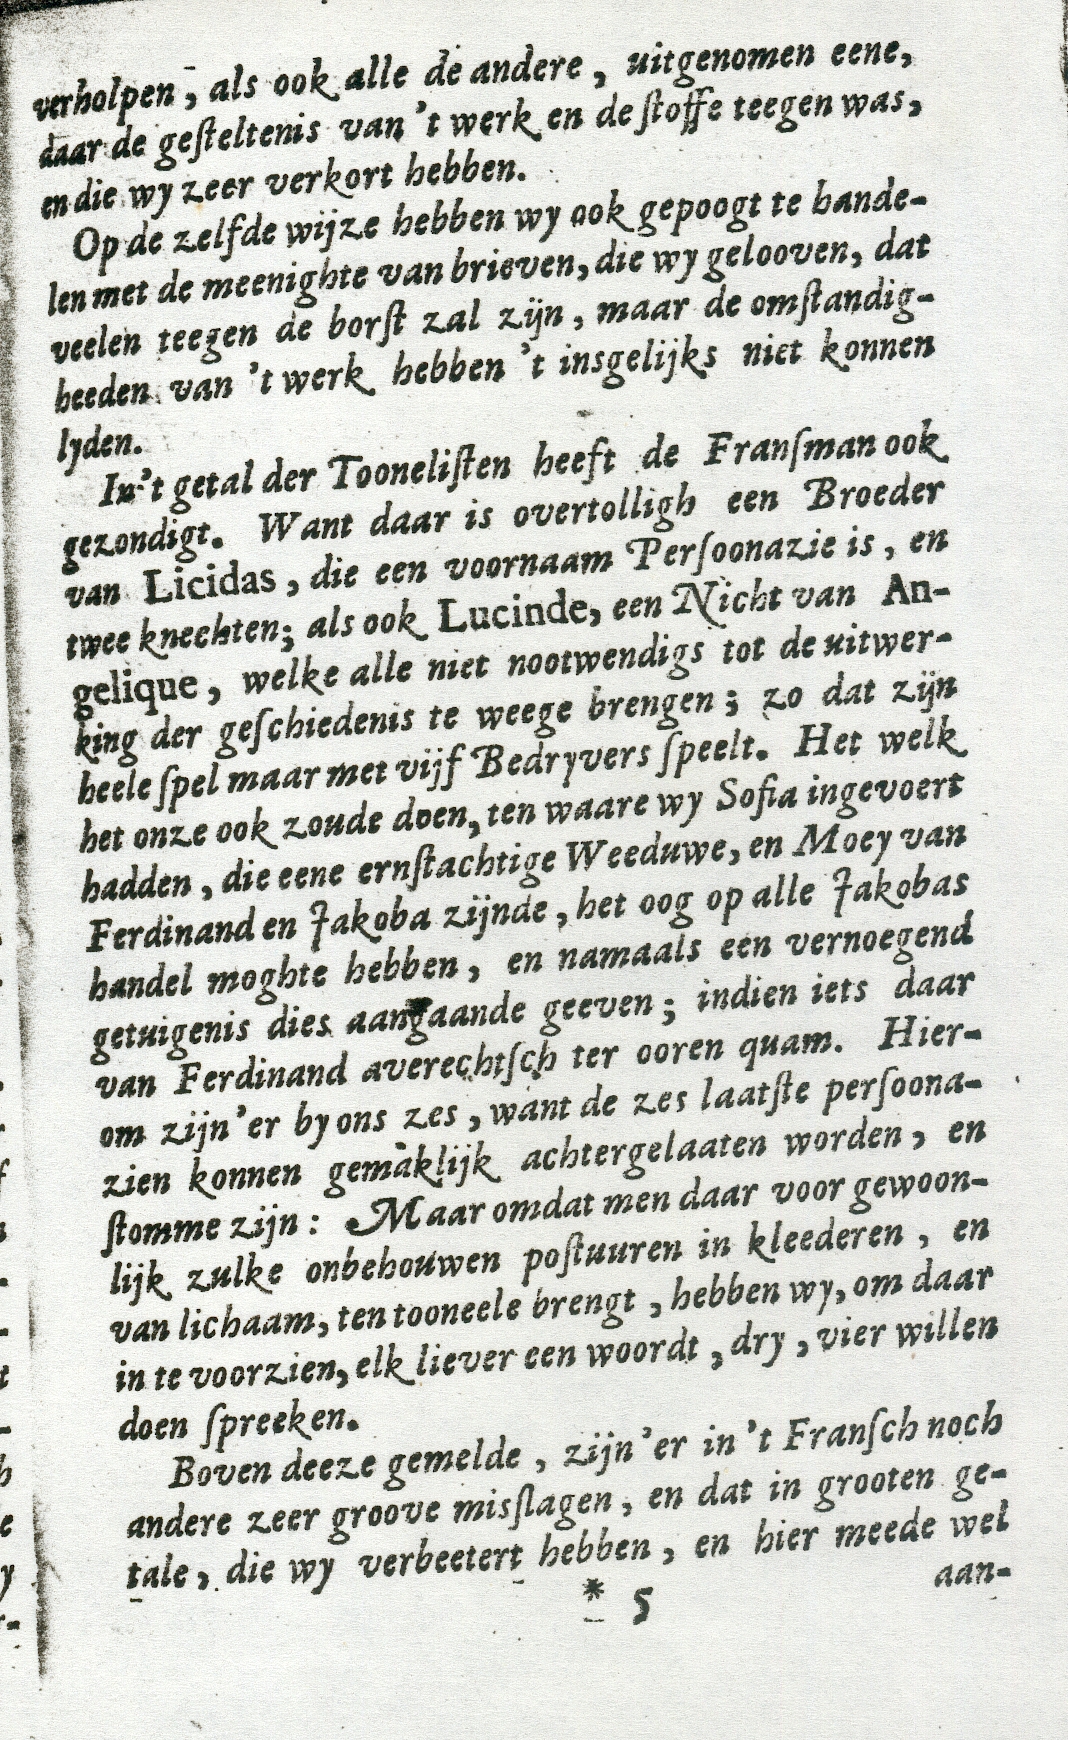 verholpen, als ook alle de andere, uitgenomen eene,
daar de geſteltenis van 't werk en de ſtoffe teegen was,
en die wy zeer verkort hebben.
Op de zelfde wijze hebben wy ook gepoogt te hande-
len met de meenighte van brieven, die wy gelooven, dat
veelen teegen de borſt zal zijn, maar de omſtandig-
heeden van 't werk hebben 't insgelijks niet konnen
lyden.
In 't getal der Tooneliſten heeft de Franſman ook
gezondigt. Want daar is overtolligh een Broeder
van Licidas, die een voornaam Perſoonazie is, en
twee knechten; als ook Lucinde, een Nicht van An-
gelique, welke alle niet nootwendigs tot de uitwer-
king der geſchiedenis te weege brengen; zo dat zijn
heele ſpel maar met vijf Bedryvers ſpeelt. Het welk
het onze ook zoude doen, ten waare wy Sofia ingevoert
hadden, die eene ernſtachtige Weeduwe, en Moey van
Ferdinand en Jakoba zijnde, het oog op alle Jakobas
handel moghte hebben, en namaals een vernoegend
getuigenis dies aangaande geeven; indien iets daar
van Ferdinand averechtſch ter ooren quam. Hier-
om zijn'er by ons zes, want de zes laatſte perſoona-
zien konnen gemaklijk achtergelaaten worden, en
ſtomme zijn: Maar omdat men daar voor gewoon-
lijk zulke onbehouwen poſtuuren in kleederen, en
van lichaam, ten tooneele brengt, hebben wy, om daar
in te voorzien, elk liever een woordt, dry, vier willen
doen ſpreeken.
Boven deeze gemelde, zijn'er in 't Franſch noch
andere zeer groove misſlagen, en dat in grooten ge-
tale, die wy verbeetert hebben, en hier meede wel
* 5 aan-